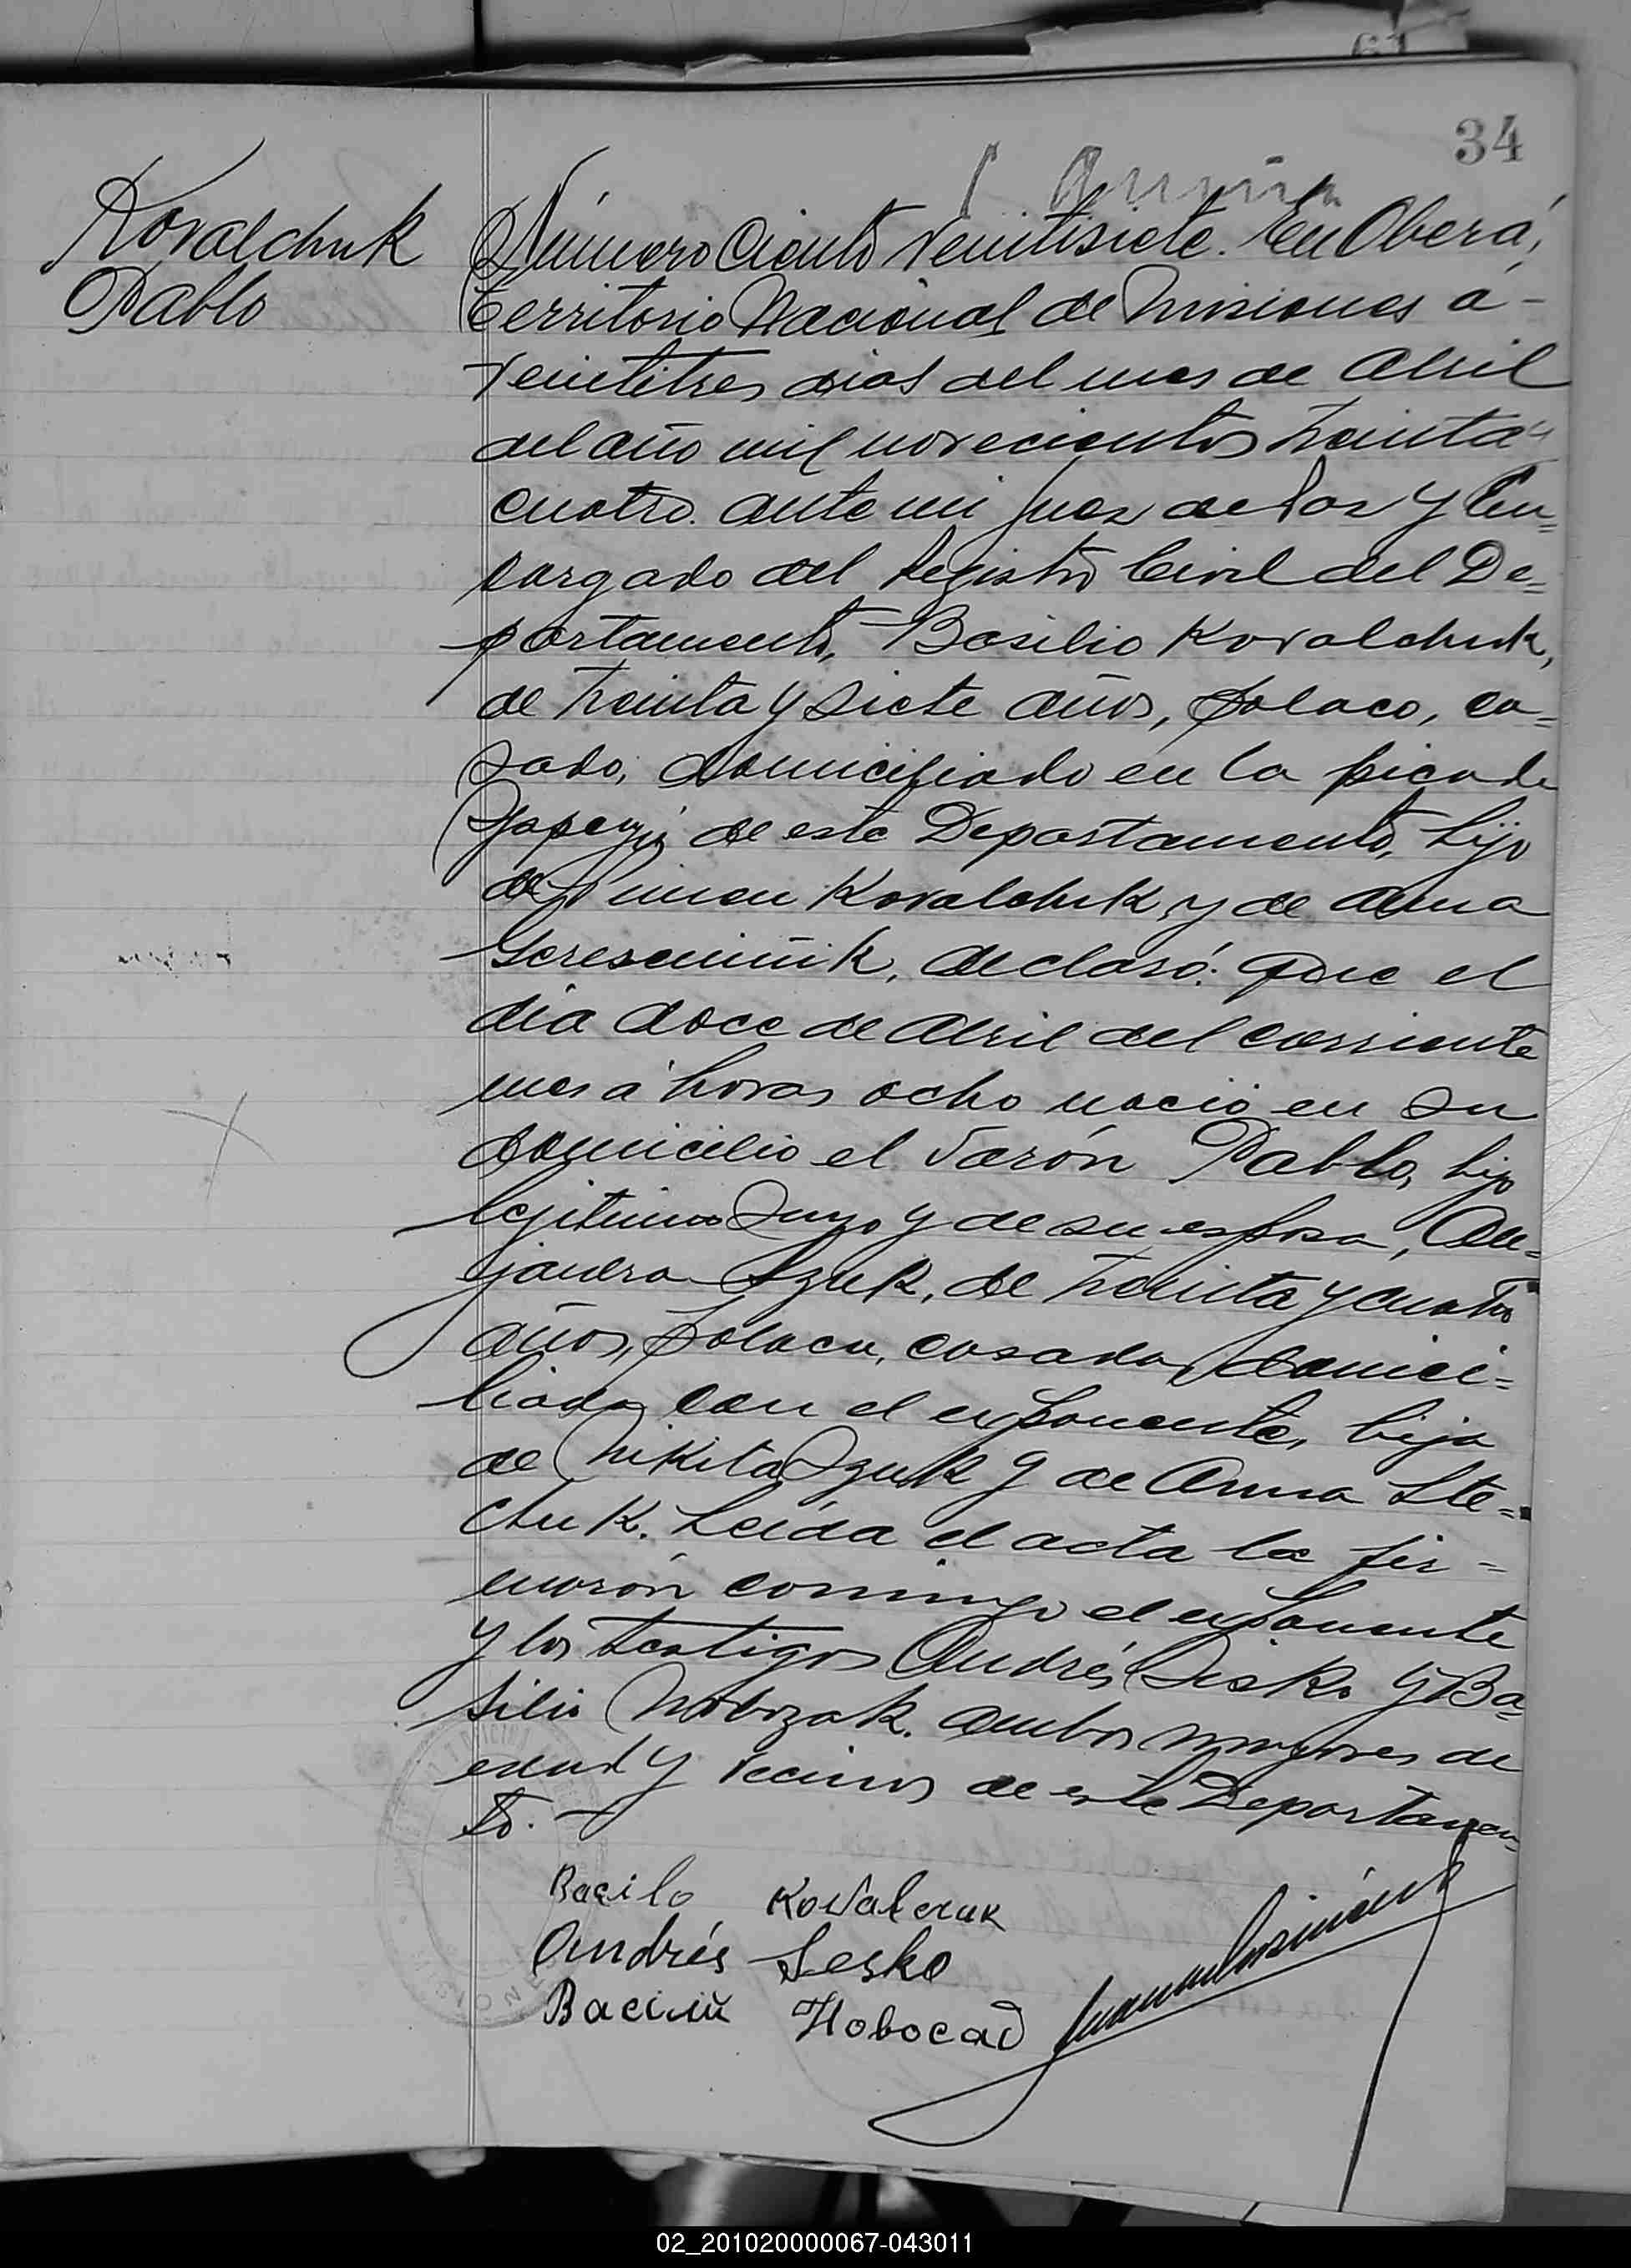 34
Kovalchuk
Pablo
Número Ciento Veintisiete. En Oberá,
Territorio Nacional de Misiones á
veintitres dias del mes de Abril
del año mil novecientos treinta y
cuatro. ante mi Juez de Paz y En=
cargado del Registro Civil del De=
partamento, Basilio Kovalchuk,
de treinta y siete años, polaco, ca=
sado, domiciliado en la picada
Yapeyú de este Departamento, hijo
de Kovalchuk y de Anna
declaró: Que el
día doce de Abril del corriente
mes á horas ocho nació en su
domicilio el varón Pablo, hijo
legitimo suyo y de su esposa,
de treinta y cuatro
años, polaca, casada, domici=
liada con el exponente, hija
de Nikita y de Anna Ste=
chuk. Leída el acta la fir=
marón conmigo el exponente
y los testigos Andrés Sesko y Ba=
silio ambos mayores de
edad y vecinos de este Departamen=
to.
Bacilo Kovalczuk
Andrés Sesko
Василий Новосад
02_201020000067-043011